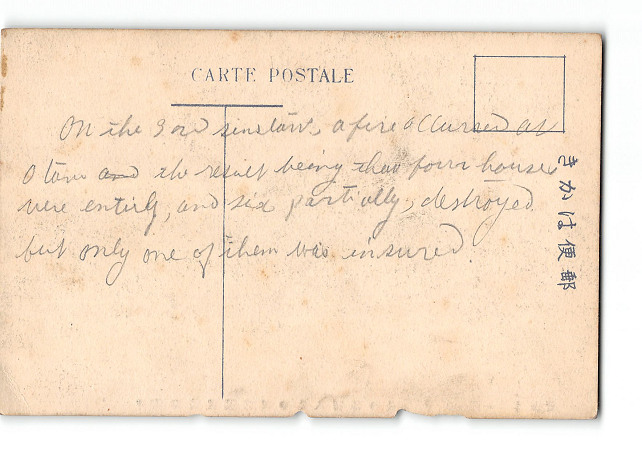 CARTE POSTALE
On the 3rd instant, a fire occurred at
Otaru and the result being that four houses
were entirly, and six partially, destroyed
but only one of them was insured.
きかは便郵